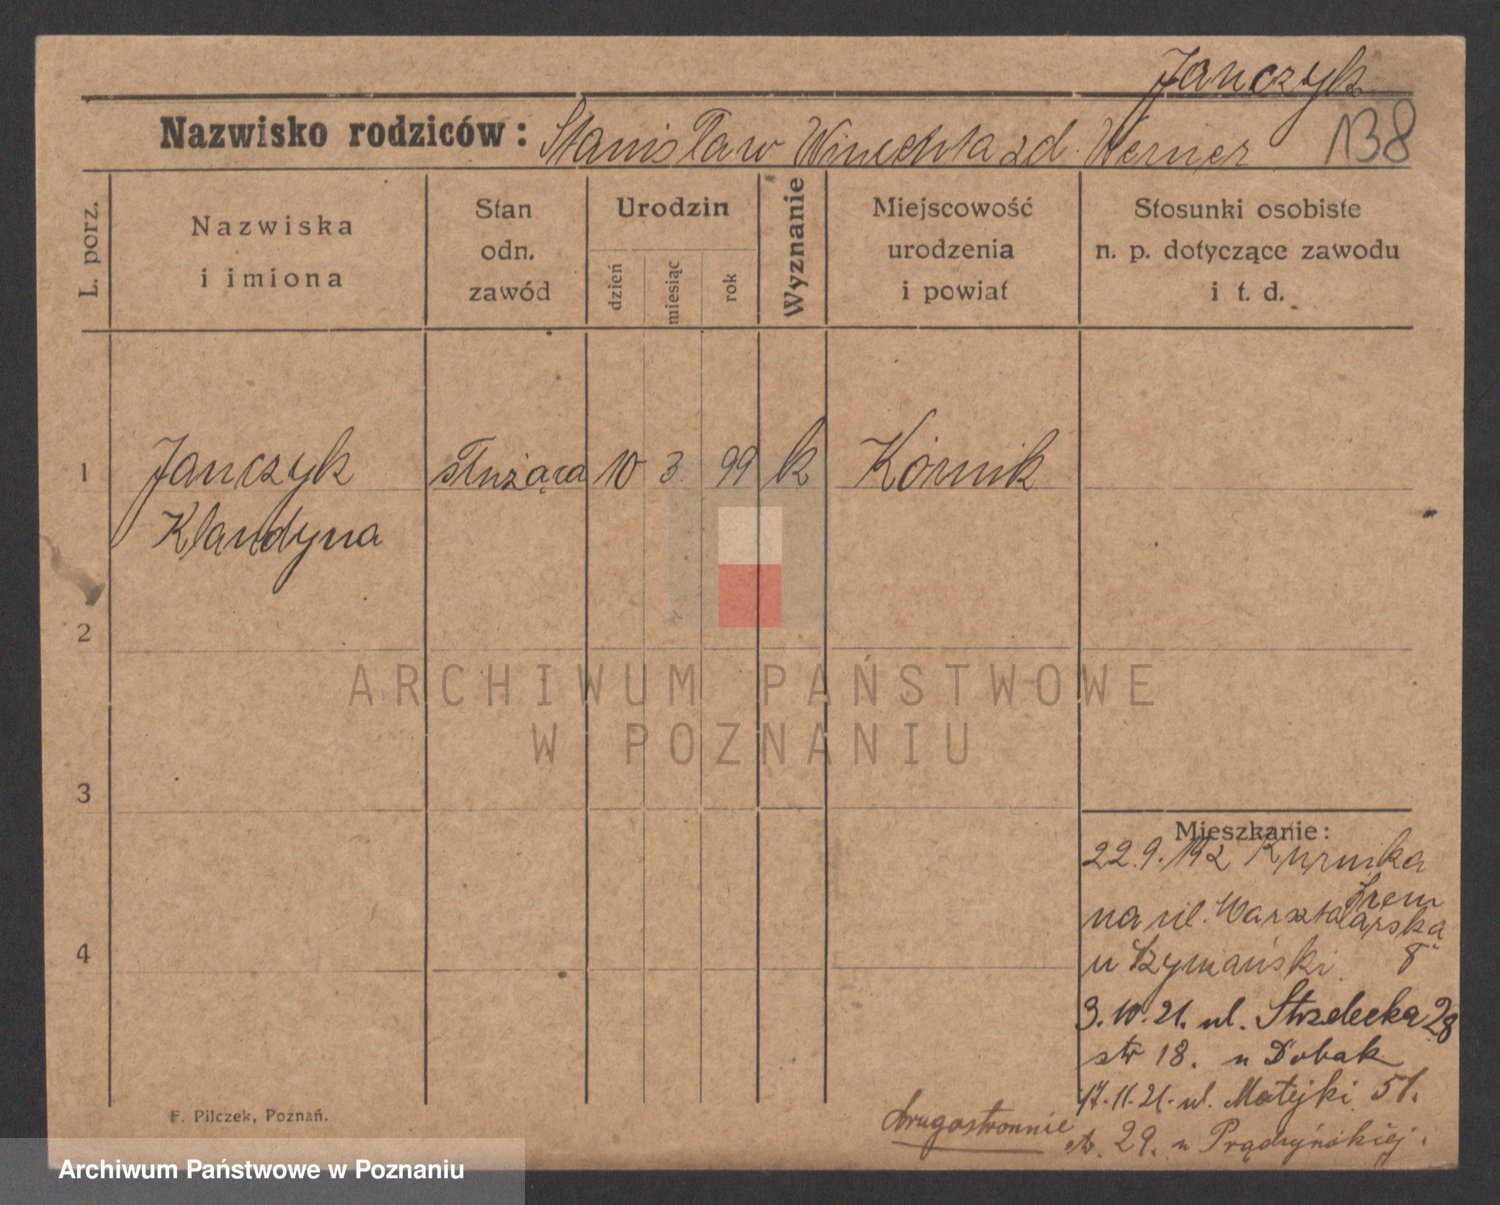 Janczyk
Nazwisko rodziców: Stanisław Winechta zd. Werner 138
L. porz.
Nazwiska
i imiona
Stan
odn.
zawód
Urodzin
dzień
miesiąc
rok
Wyznanie
Miejscowość
urodzenia
i powiat
Stosunki osobiste
n. p. dotyczące zawodu
i t. d.
1 Janczyk służąca 10 3. 99 k Kórnik
Klaudyna
2
3
4
Mieszkanie:
22.9. 192 Kurnika
Śrem
na ul. Warsztatarska
u Szymański 8
3.10.21. ul. Strzelecka 28
str 18. u Dobak
17.11.21. ul. Matejki 51.
st. 29. u Prądzyńskiej.
drugostronnie
F. Pilczek, Poznań.
ARCHIWUM PAŃSTWOWE
W POZNANIU
Archiwum Państwowe w Poznaniu